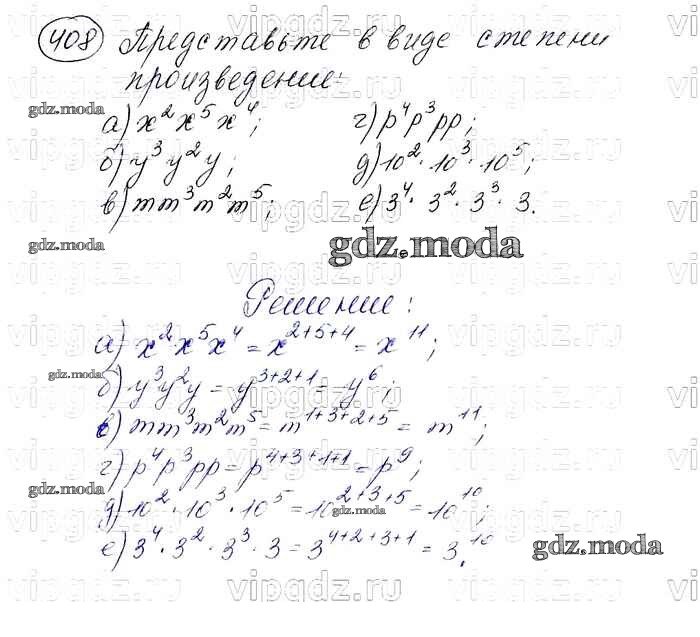 408 Представьте в виде степени
произведение:
а) x² x⁵ x⁴; г) p⁴ p³ p p;
б) y³ y² y; д) 10² · 10³ · 10⁵;
в) m m³ m² m⁵; е) 3⁴ · 3² · 3³ · 3.
Решение:
а) x² x⁵ x⁴ = x²⁺⁵⁺⁴ = x¹¹;
б) y³ y² y = y³⁺²⁺¹ = y⁶;
в) m m³ m² m⁵ = m¹⁺³⁺²⁺⁵ = m¹¹;
г) p⁴ p³ p p = p⁴⁺³⁺¹⁺¹ = p⁹;
д) 10² · 10³ · 10⁵ = 10²⁺³⁺⁵ = 10¹⁰;
е) 3⁴ · 3² · 3³ · 3 = 3⁴⁺²⁺³⁺¹ = 3¹⁰.
gdz.moda
gdz.moda
gdz.moda
gdz.moda
gdz.moda
gdz.moda
gdz.moda
vipgdz.ru